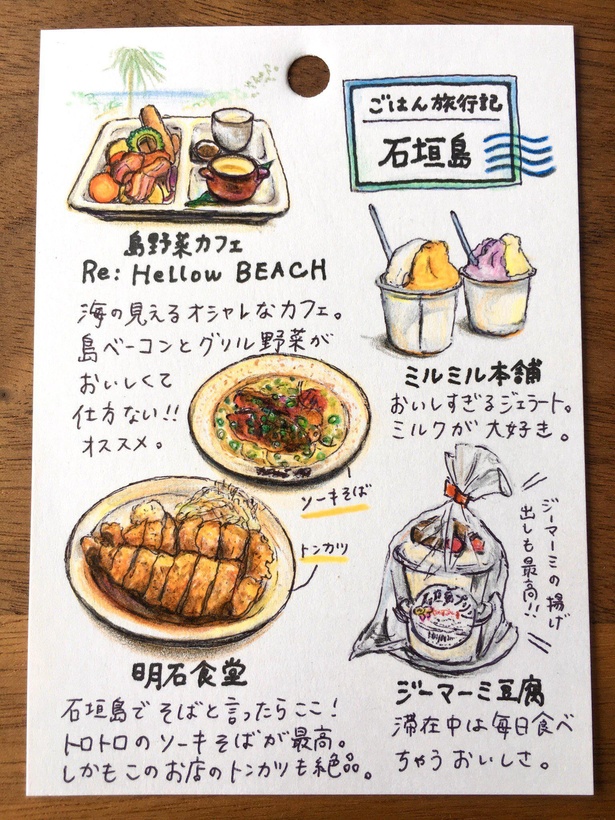 ごはん旅行記
石垣島
島野菜カフェ
Re: Hellow BEACH
海の見えるオシャレなカフェ。
島ベーコンとグリル野菜が
おいしくて
仕方ない!!
オススメ。
ミルミル本舗
おいしすぎるジェラート。
ミルクが大好き。
ソーキそば
トンカツ
明石食堂
石垣島でそばと言ったらここ!
トロトロのソーキそばが最高。
しかもこのお店のトンカツも絶品。
ジーマーミの揚げ
出しも最高!!
ジーマーミ豆腐
滞在中は毎日食べ
ちゃうおいしさ。